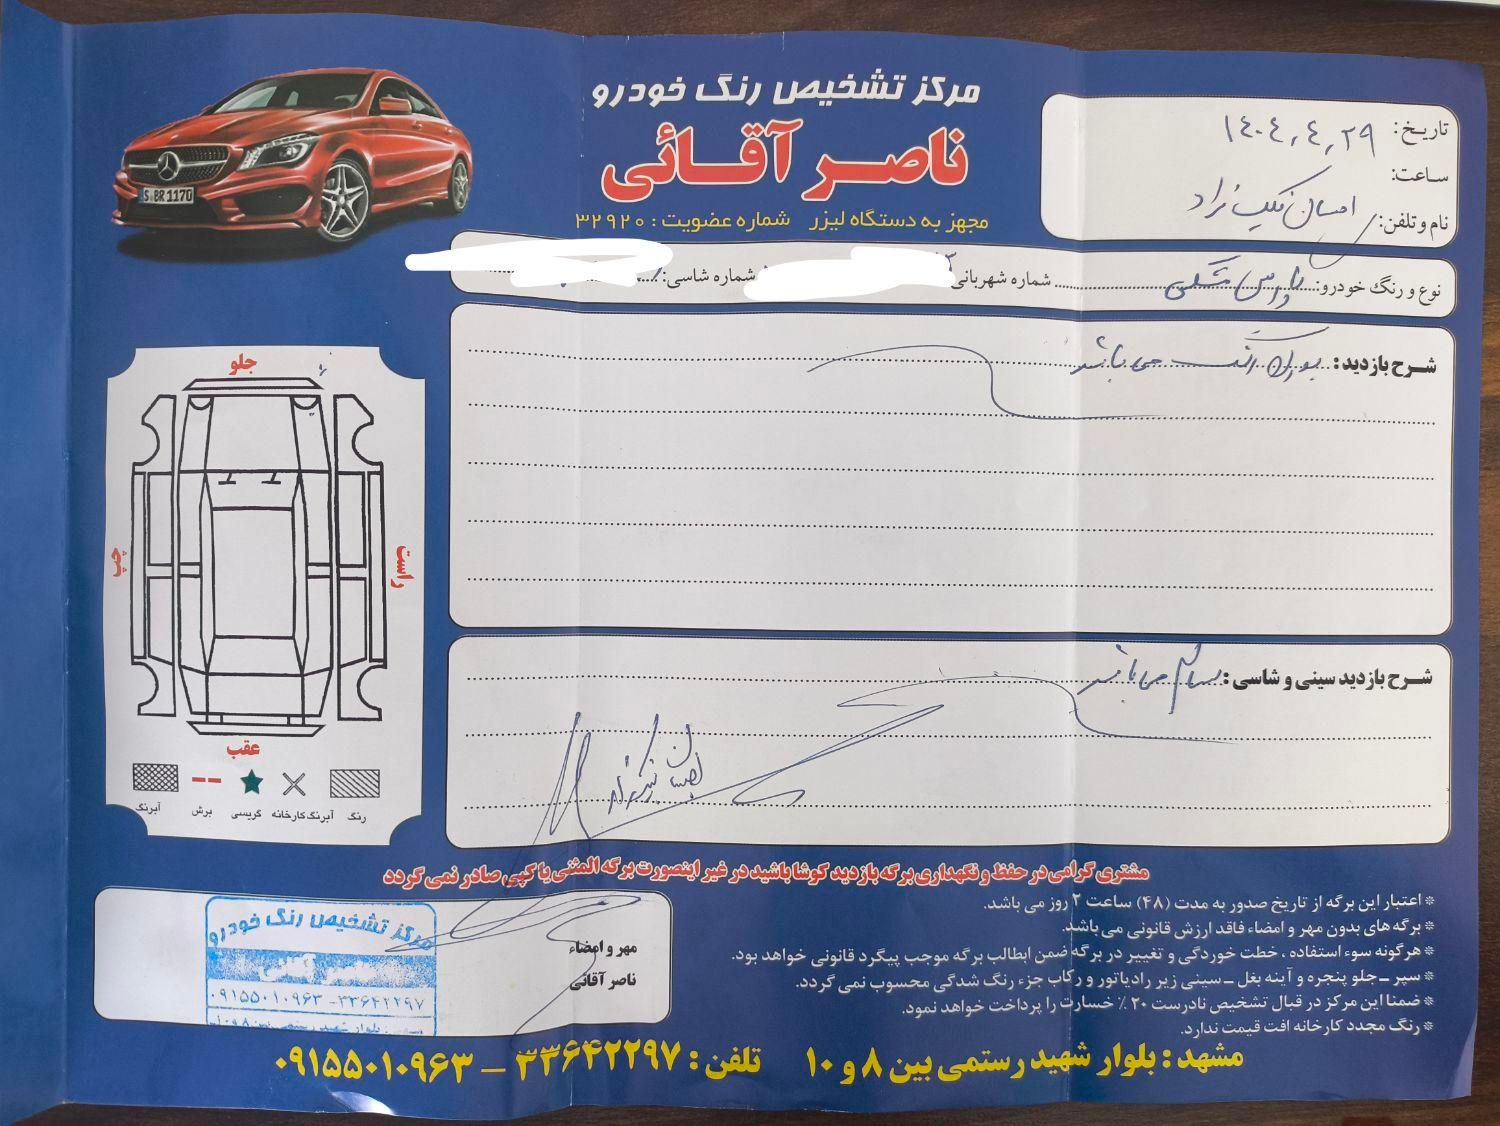 مرکز تشخیص رنگ خودرو
ناصر آقائی
مجهز به دستگاه لیزر شماره عضویت : ۳۲۹۲۰
تاریخ: ۱۴۰۴,۴,۲۹
ساعت:
نام وتلفن: احسان نیک نژاد
نوع و رنگ خودرو: مشکی شماره شهربانی شماره شاسی:
S BR 1170
شرح بازدید: بدون رنگ می باشد
شرح بازدید سینی و شاسی: سالم می باشد
جلو
چپ
راست
عقب
رنگ آبرنگ کارخانه گریسی برش آبرنگ
مشتری گرامی در حفظ و نگهداری برگه بازدید کوشا باشید در غیر اینصورت برگه المثنی یا کپی صادر نمی گردد
* اعتبار این برگه از تاریخ صدور به مدت (۴۸) ساعت ۲ روز می باشد.
* برگه های بدون مهر و امضاء فاقد ارزش قانونی می باشد.
* هرگونه سوء استفاده ، خطت خوردگی و تغییر در برگه ضمن ابطالب برگه موجب پیگرد قانونی خواهد بود.
* سپر ـ جلو پنجره و آینه بغل ـ سینی زیر رادیاتور و رکاب جزء رنگ شدگی محسوب نمی گردد.
* ضمنا این مرکز در قبال تشخیص نادرست ۲۰٪ خسارت را پرداخت خواهد نمود.
* رنگ مجدد کارخانه افت قیمت ندارد.
مهر و امضاء
ناصر آقائی
مرکز تشخیص رنگ خودرو
ناصر آقائی
۰۹۱۵۵۰۱۰۹۶۳ - ۳۳۶۴۲۲۹۷
مشهد : بلوار شهید رستمی بین ۸ و ۱۰ تلفن : ۳۳۶۴۲۲۹۷ – ۰۹۱۵۵۰۱۰۹۶۳